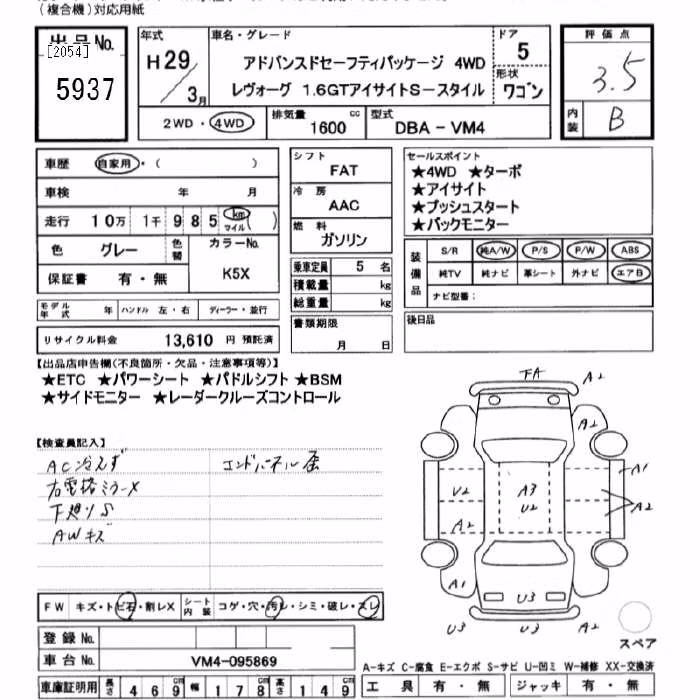 (複合機)対応用紙
出品No.
[2054]
5937
年式
H29/3月
車名・グレード
アドバンスドセーフティパッケージ 4WD
レヴォーグ 1.6GTアイサイトS-スタイル
ドア
5
形状
ワゴン
評価点
3.5
内装
B
2WD・4WD
排気量 1600 cc
型式 DBA-VM4
車歴 自家用・( )
車検 年 月
走行 10万 1千 985 km マイル ( )
色 グレー 色替 カラーNo. K5X
保証書 有・無
モデル年式 年 ハンドル 左・右 ディーラー・並行
リサイクル料金 13,610 円 預託済
シフト
FAT
冷房
AAC
燃料
ガソリン
乗車定員 5 名
積載量 kg
総重量 kg
書類期限
月 日
セールスポイント
★4WD ★ターボ
★アイサイト
★プッシュスタート
★バックモニター
装備品
S/R 純A/W P/S P/W ABS
純TV 純ナビ 革シート 外ナビ エアB
ナビ型番:
後日品
【出品店申告欄(不良箇所・欠品・注意事項等)】
★ETC ★パワーシート ★パドルシフト ★BSM
★サイドモニター ★レーダークルーズコントロール
【検査員記入】
AC冷えず エンドパネル歪
右電格ミラーX
下廻りS
AWキズ
FW キズ・トビ石・割レX シート内装 コゲ・穴・汚レ・シミ・破レ・スレ
登録No.
車台No. VM4-095869
車庫証明用 長さ 469 cm 幅 178 cm 高さ 149 cm
FA A2
A2
A1
U2 A3 U2
A2
A2
A1
U3
U3 U3
スペア
A-キズ C-腐食 E-エクボ S-サビ U-凹ミ W-補修 XX-交換済
工具 有・無 ジャッキ 有・無